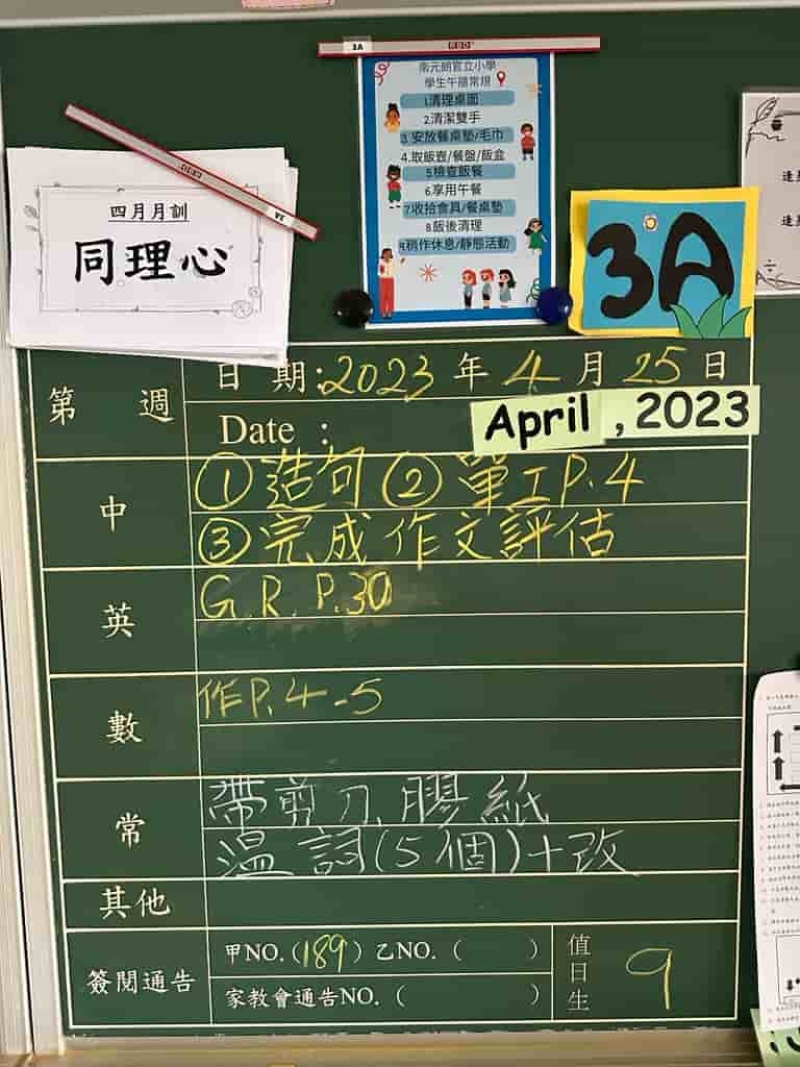 3A
四月月訓
同理心
南元朗官立小學
學生午膳常規
1.清理桌面
2.清潔雙手
3.安放餐桌墊/毛巾
4.取飯壺/餐盤/飯盒
5.檢查飯餐
6.享用午餐
7.收拾食具/餐桌墊
8.飯後清理
9.稍作休息/靜態活動
3A
第 週
日 期:2023 年 4 月 25 日
Date :
April , 2023
中
①造句 ② 單工P.4
③完成作文評估
英
G.R. P.30
數
作P.4-5
常
帶剪刀,膠紙
溫詞(5個)+改
其他
簽閱通告
甲NO.(189) 乙NO.( )
家教會通告NO.( )
值日生
9